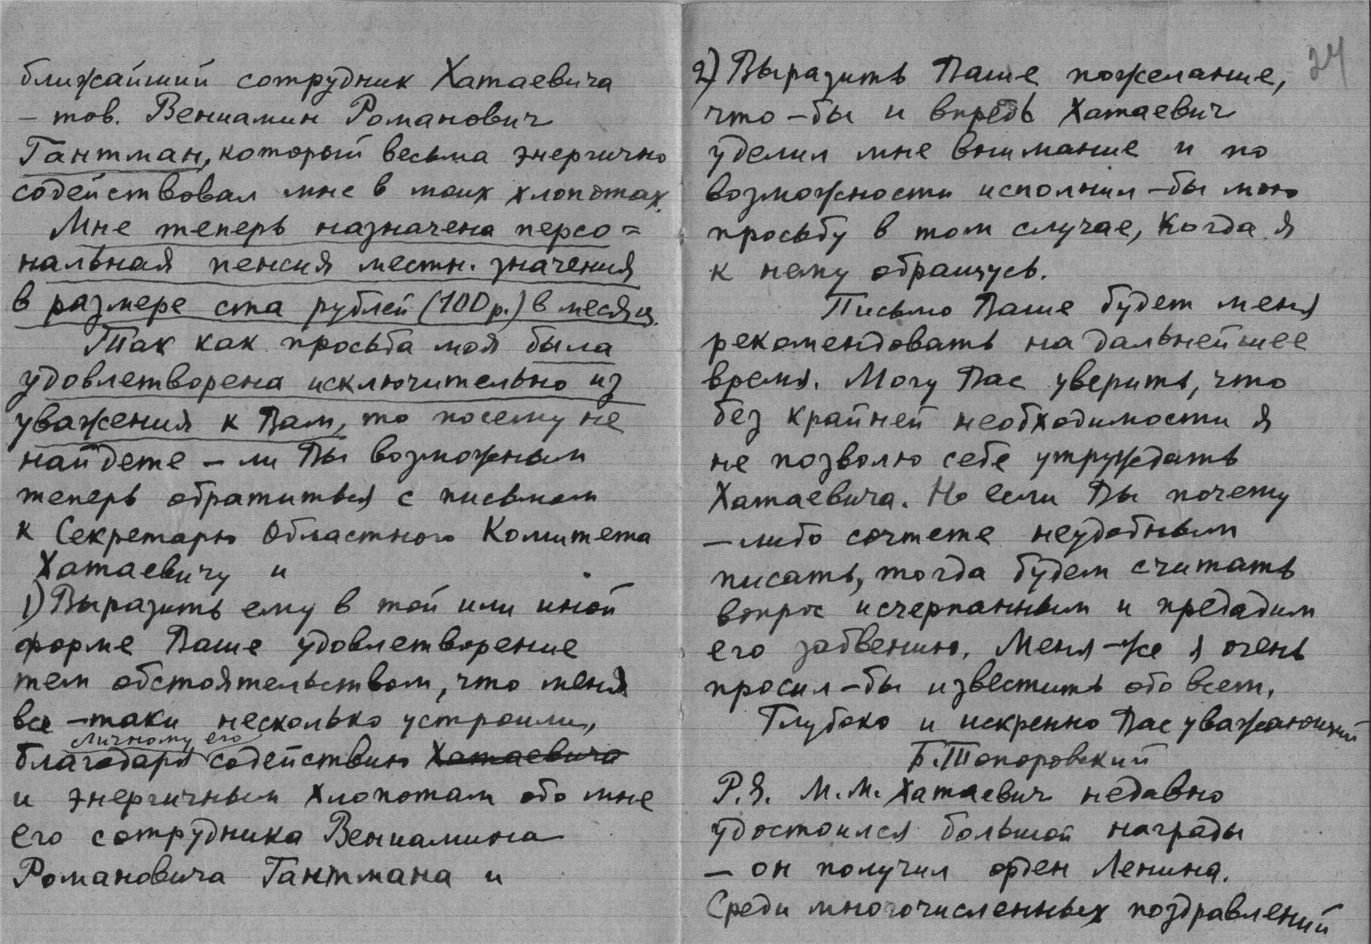 ближайший сотрудник Хатаевича
– тов. Вениамин Романович
Гантман, который весьма энергично
содействовал мне в моих хлопотах.
Мне теперь назначена персо=
нальная пенсия местн. значения
в размере ста рублей (100 р.) в месяц.
Так как просьба моя была
удовлетворена исключительно из
уважения к Вам, то посему не
найдете – ли Вы возможным
теперь обратиться с письмом
к Секретарю Областного Комитета
Хатаевичу и
1) Выразить ему в той или иной
форме Ваше удовлетворение
тем обстоятельством, что меня
все – таки несколько устроили,
личному его
благодаря содействию Хатаевича
и энергичным хлопотам обо мне
его сотрудника Вениамина
Романовича Гантмана и
24
2) Выразить Ваше пожелание,
что – бы и впредь Хатаевич
уделил мне внимание и по
возможности исполнил – бы мою
просьбу в том случае, когда я
к нему обращусь.
Письмо Ваше будет меня
рекомендовать на дальнейшее
время. Могу Вас уверить, что
без крайней необходимости я
не позволю себе утруждать
Хатаевича. Но если Вы почему
– либо сочтете неудобным
писать, тогда будем считать
вопрос исчерпанным и предадим
его забвению. Меня – же я очень
просил – бы известить обо всем.
Глубоко и искренно Вас уважающий
Б. Топоровский
Р.Я. М.М. Хатаевич недавно
удостоился большой награды
– он получил орден Ленина.
Среди многочисленных поздравлений